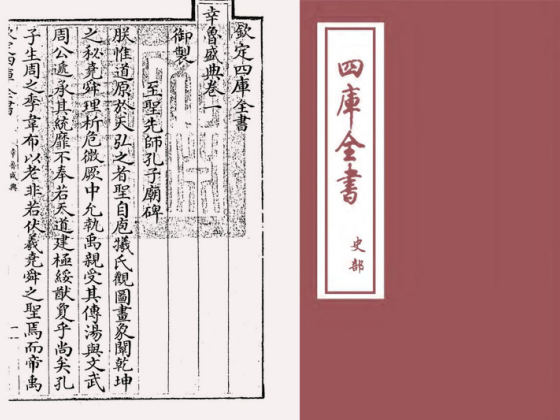 欽定四庫全書
幸魯盛典卷一
御製
至聖先師孔子廟碑
朕惟道原於天弘之者聖自庖犧氏觀圖畫象闡乾坤
之秘堯舜理析危微厥中允執禹親受其傳湯與文武
周公遞承其統靡不奉若天道建極綏猷敻乎尚矣孔
子生周之季韋布以老非若伏羲堯舜之聖焉而帝禹
幸魯盛典
四庫全書
史部